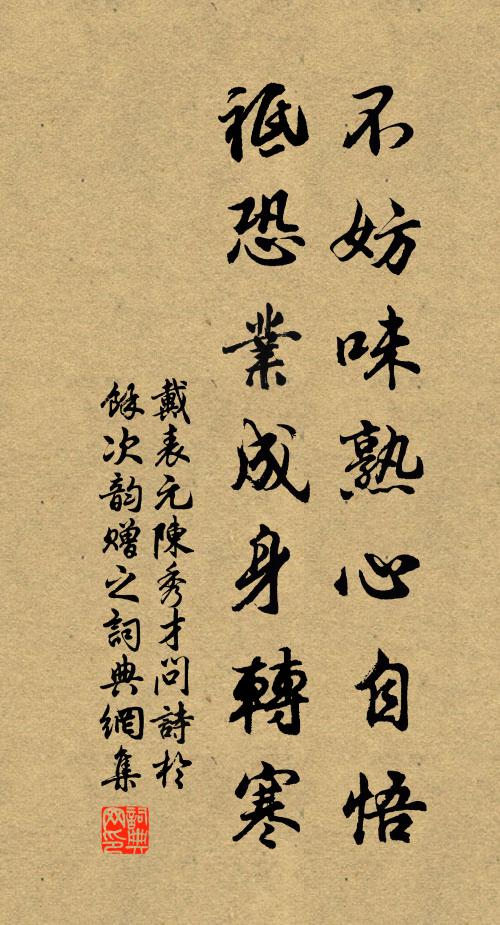 不妨味熟心自悟
祗恐業成身轉寒
戴表元陳秀才問詩於
餘次韵贈之詞典網集
詞典网印